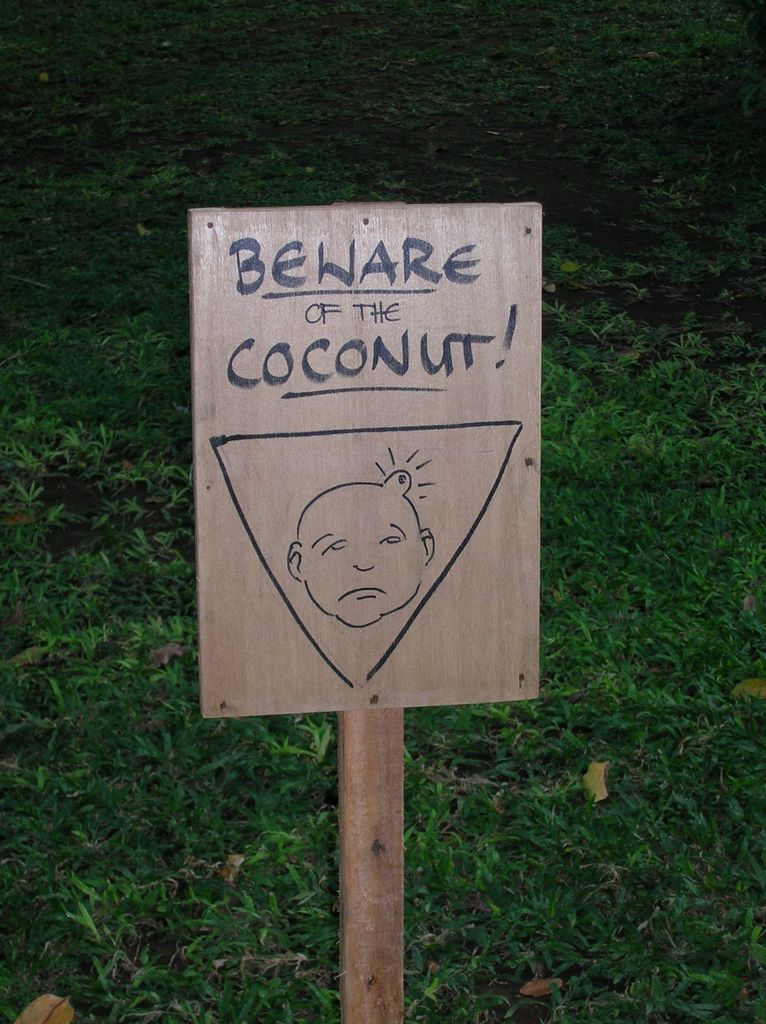 BEWARE
OF THE
COCONUT!